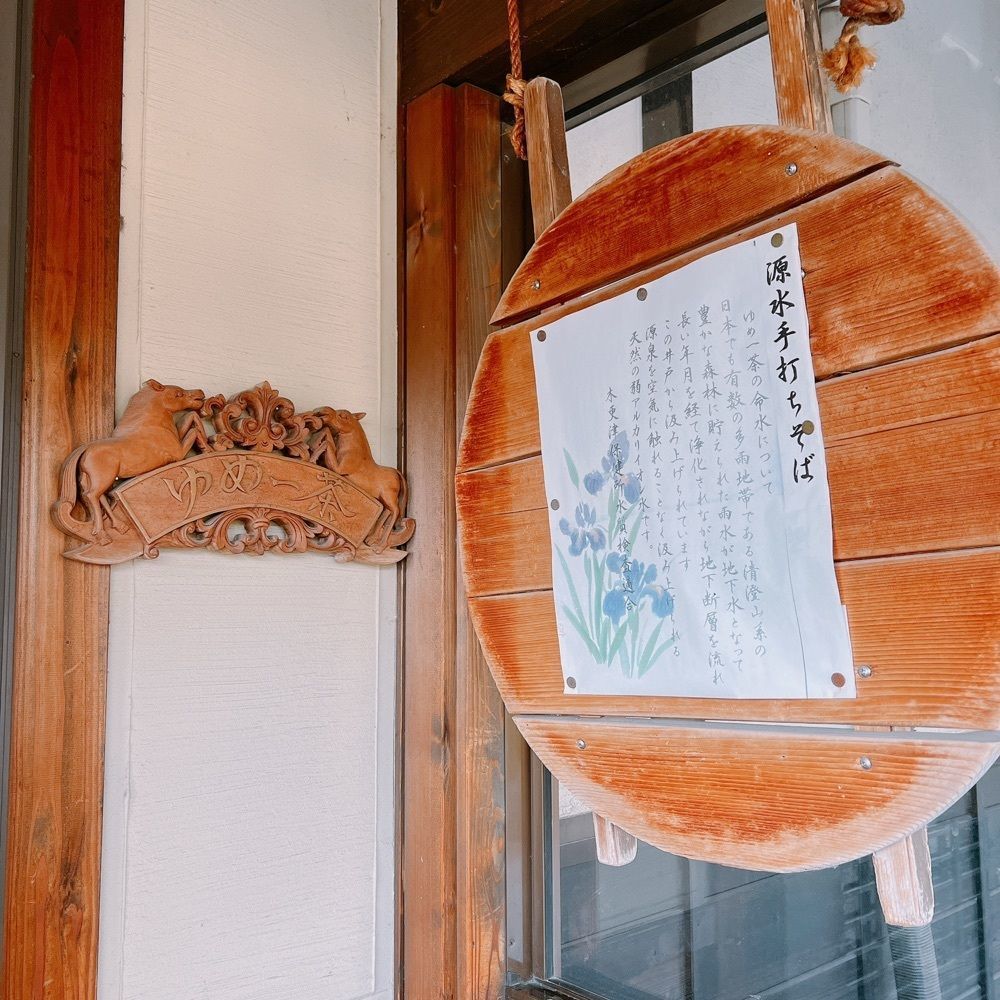 ゆめ一茶
源水手打ちそば
ゆめ一茶の命水について
日本でも有数の多雨地帯である清澄山系の
豊かな森林に貯えられた雨水が地下水となって
長い年月を経て浄化されながら地下断層を流れ
この井戸から汲み上げられています
源泉を空気に触れることなく汲み上げられる
天然の弱アルカリイオン水です。
木更津保健所水質検査適合